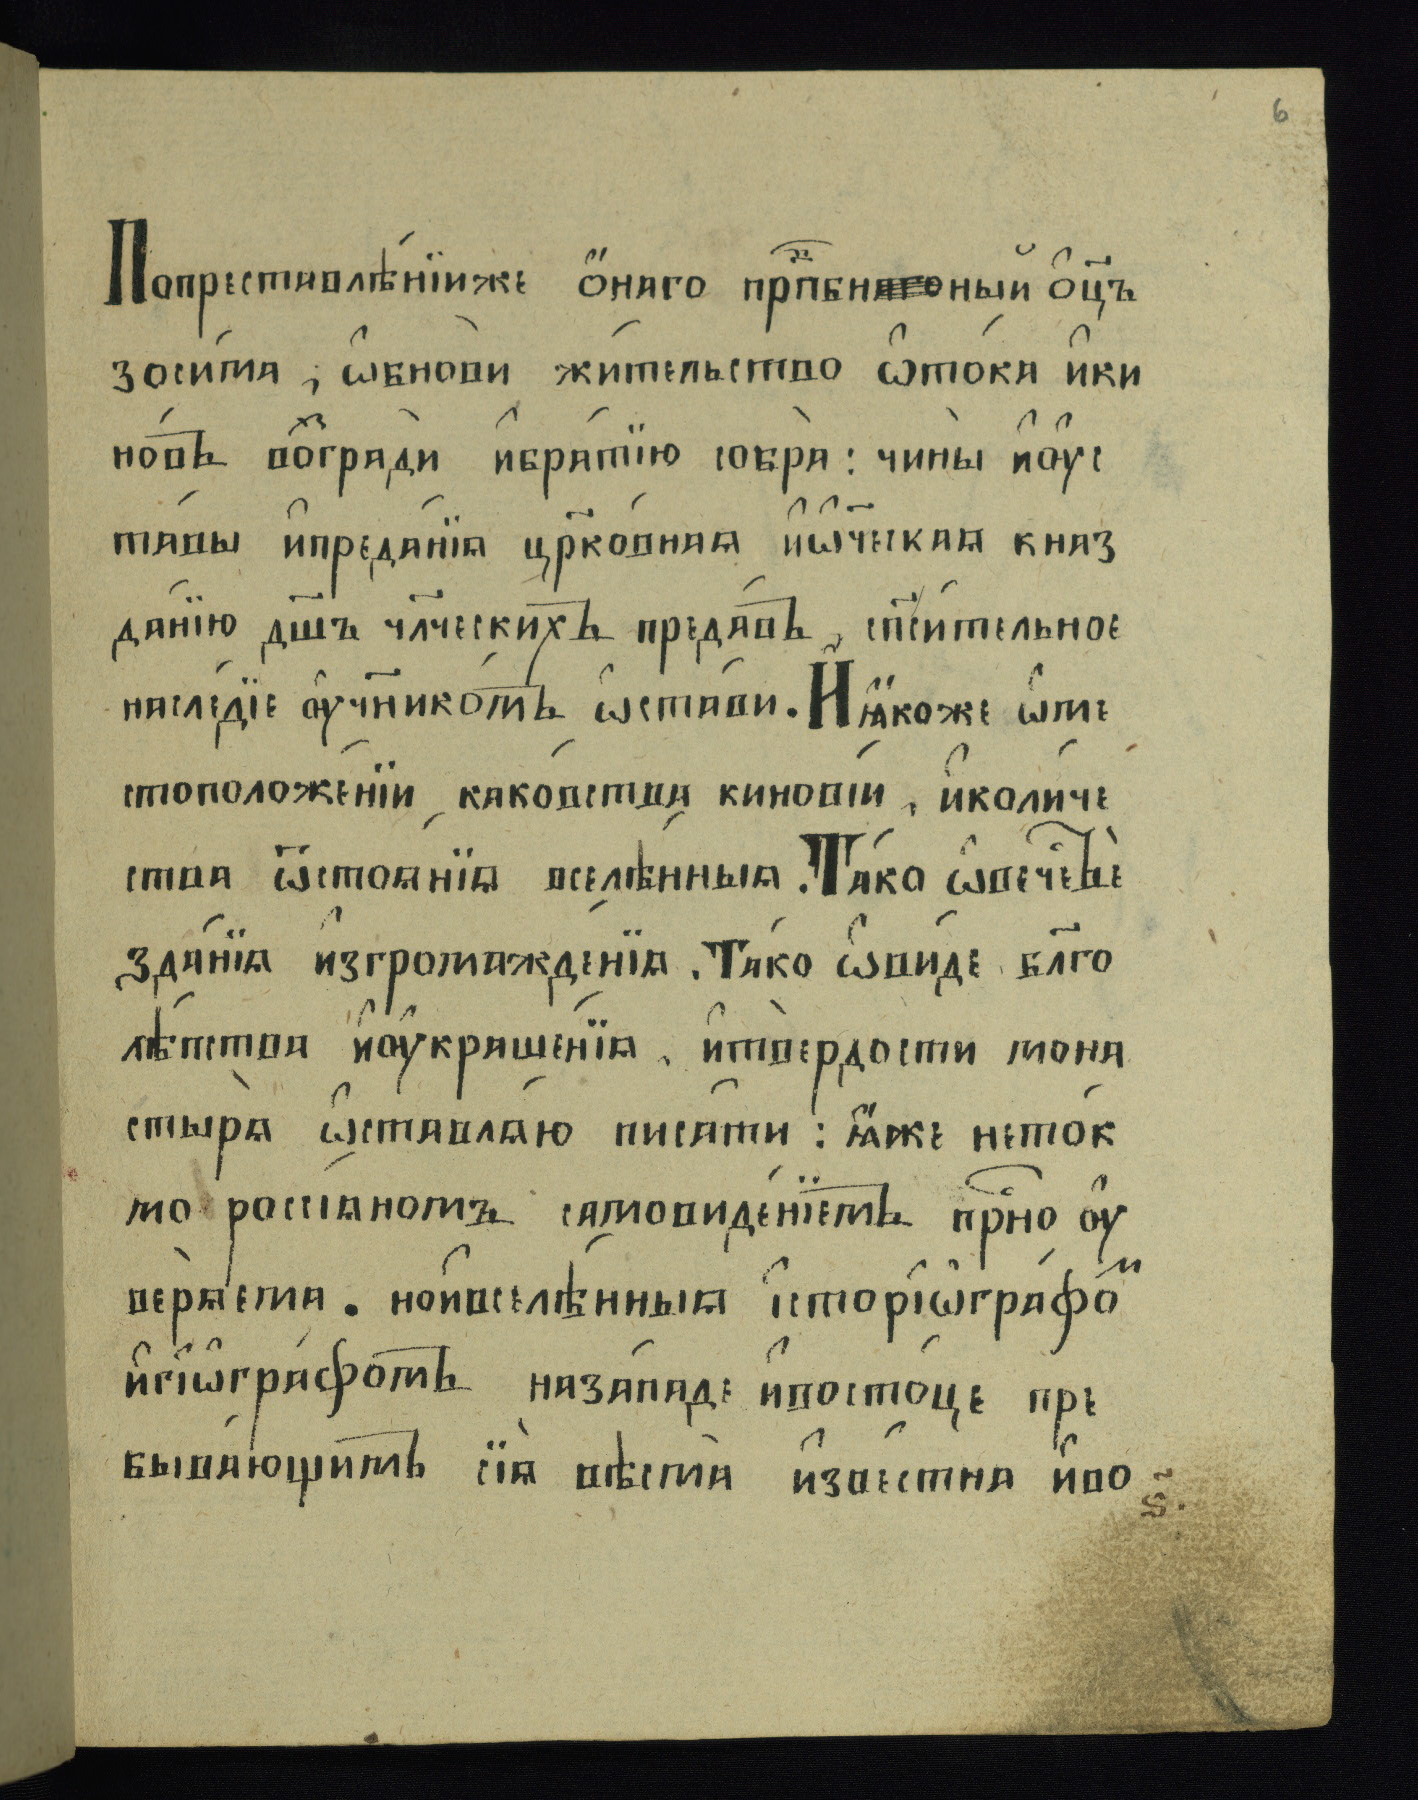 6
Попреставлѣ́нїиже ѻ҆́наго прпⷣбнагоный ѻ҆ц҃ъ
зоси́ма, ѡ҆бнови̇̀ жи́тельство ѡ҆то́ка и҆ки
но́въ воⷥгради̇̀ и҆бра́тїю собра̀: чи́ны и҆оу҆с
та́вы и҆преда́нїѧ цр҃ко́внаѧ и҆ѡ҆ч҃ескаѧ кназ
да́нїю дш҃ъ чл҃ческихъ преда́въ, сп҃си́тельное
насле́дїе оу҆ч҃нико́мъ ѡ҆ста́ви. И҆ ꙗ҆́коже ѡ҆ме
стоположе́нїи како́вства кинові́и, и҆коли́че
ства ѿстоѧ́нїѧ вселѣ́нныѧ. Та́ко ѡ҆вечеⷭ҇вѣ
зда́нїѧ и҆згроможде́нїѧ. Та́ко ѡ҆виде бл҃го
лѣ́пства и҆оу҆краше́нїѧ, и҆тве́рдости мона
стырѧ̀ ѡ҆ставлѧ́ю писа́ти: ꙗ҆̀же нето́к
мо россїѧномъ самовиде́нїемъ при́сно оу҆
верѧ́ема. нои҆вселѣ́нныѧ і҆сторїѡ҆гра́фоⷨ
и҆гїѡ҆гра́фомъ наза́паде и҆восто́це пре
быва́ющимъ сїѧ̀ вѣ́ста и҆зве́стна и҆во
ѕ҃.